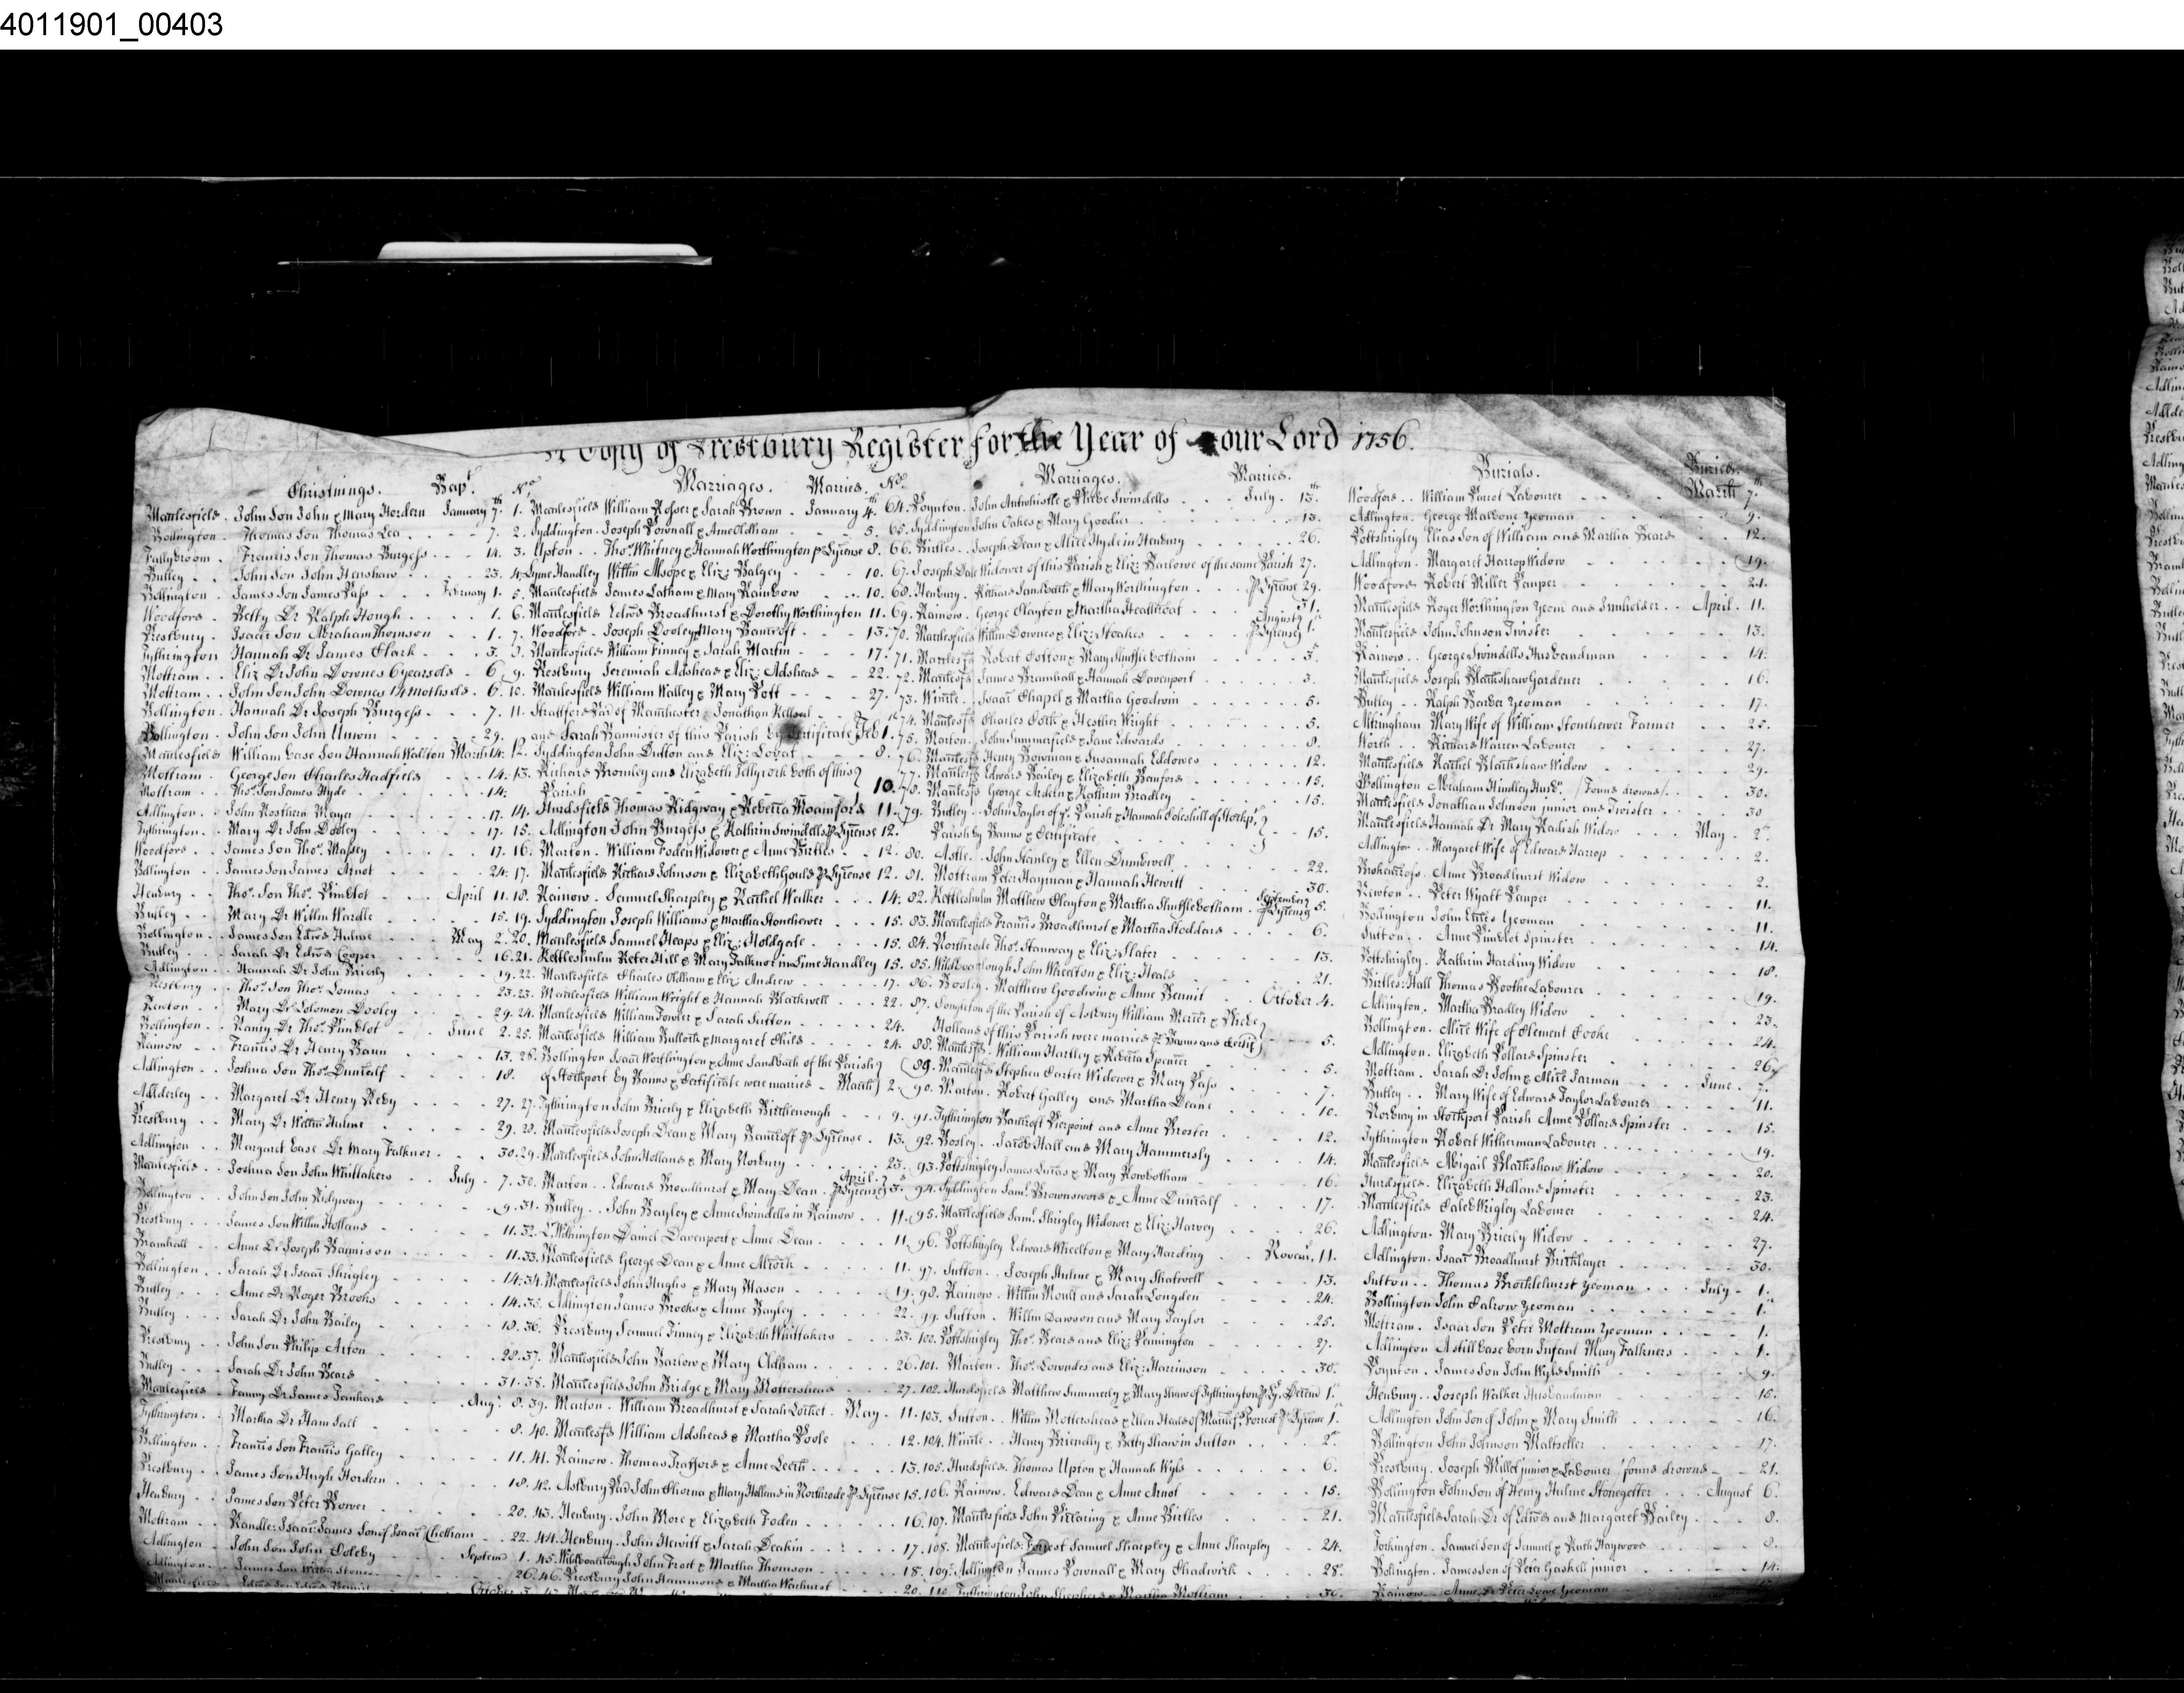 4011901_00403
A Copy of Prestbury Register for the Year of our Lord 1756.
Christnings. Bapt.
Macclesfield. John Son John & Mary Hordern January 7th
Bollington. Thomas Son Thomas Lea 7.
Fallybroom. Francis Son Thomas Burgess 14.
Butley John Son John Henshaw 23.
Bollington. James Son James Pass February 1.
Woodford. Betty Dr Ralph Hough 1.
Prestbury. Isaac Son Abraham Thomson 1.
Tythrington Hannah Dr James Clark 3.
Mottram. Eliz Dr John Downes 6 years old 6.
Mottram. John Son John Downes 14 moths old 6.
Bollington. Hannah Dr Joseph Burgess 7.
Bollington. John Son John Unwin 29.
Macclesfield William base Son Hannah Walton March 14.
Mottram. George Son Charles Hadfield 14.
Mottram. Thos. Son James Hyde 14.
Adlington. John Rosthern Mayer 17.
Tythrington. Mary Dr John Dooley 17.
Woodford. James Son Thos. Massey 17.
Bollington. James Son James Arnot 24.
Henbury. Thos. Son Thos. Pimblot April 11.
Butley. Mary Dr Willm Wardle 15.
Bollington. James Son Edwd Hulme May 2.
Butley. Sarah Dr Edwd Cooper 16.
Adlington. Hannah Dr John Brierly 19.
Prestbury. Thos. Son Thos. Lomas 23.
Newton. Mary Dr Solomon Dooley 29.
Bollington. Nancy Dr Thos. Pimblot June 2.
Rainow. Francis Dr Henry Bann 13.
Adlington. Joshua Son Thos. Duncalf 18.
Adderley. Margaret Dr Henry Reby 27.
Prestbury. Mary Dr Willm Hulme 29.
Adlington. Margaret base Dr Mary Falkner 30.
Macclesfield. Joshua Son John Whittakers July 7.
Bollington. John Son John Ridgway 9.
Prestbury. James Son Willm Holland 11.
Bramhall. Anne Dr Joseph Bannison 11.
Bollington. Sarah Dr Isaac Shrigley 14.
Butley. Anne Dr Roger Brooks 14.
Butley. Sarah Dr John Bailey 18.
Prestbury. John Son Philip Arton 28.
Butley. Sarah Dr John Beard 31.
Macclesfield Fanny Dr James Tankard Aug: 8.
Tythrington. Martha Dr Ham Salt 8.
Bollington. Francis Son Francis Galley 11.
Prestbury. James Son Hugh Hordern 18.
Henbury. James Son Peter Bower 20.
Mottram. Randle: Isaac: James Son of Isaac Chetham 22.
Adlington. John Son John Coleby Septem 1.
Adlington. James Son Willm Stones 26.
Nos. Marriages. Married.
1. Macclesfield William Rosser & Sarah Brown. January 4th
2. Syddington. Joseph Pownall & Anne Oldham 5.
3. Upton. Thos. Whitney & Hannah Worthington p Lycense 8.
4. Lyme Handley Willm Alsope & Eliz: Balgey 10.
5. Macclesfield James Latham & Mary Rainbow 10.
6. Macclesfield Edwd Broadhurst & Dorothy Worthington 11.
7. Woodford. Joseph Dooley & Mary Bancroft 13.
8. Macclesfield William Finney & Sarah Martin 17.
9. Prestbury Jeremiah Adshead & Eliz: Adshead 22.
10. Macclesfield William Walley & Mary Pott 27.
11. Stratford Pad of Manchester Jonathan Kellsal
and Sarah Bannister of this Parish by Certificate Feb 1.
12. Syddington John Dutton and Eliz: Lovat 8.
13. Richard Bromley and Elizabeth Jellycock both of this
Parish 10.
14. Hurdsfield Thomas Ridgway & Rebecca Moamford 11.
15. Adlington John Burgess & Kathrin Swindells p Lycense 12.
16. Marton. William Foden Widower & Anne Birtles 12.
17. Macclesfield Richard Johnson & Elizabeth Gould p Lycense 12.
18. Rainow. Samuel Sharpley & Rachel Walker 14.
19. Syddington Joseph Williams & Martha Stonehewer 15.
20. Macclesfield Samuel Heaps & Eliz: Holdgate 15.
21. Kettleshulm Peter Hill & Mary Falkner in Lime Handley 15.
22. Macclesfield Charles Oldham & Eliz: Andrew 17.
23. Macclesfield William Wright & Hannah Blackwell 22.
24. Macclesfield William Fowler & Sarah Sutton 24.
25. Macclesfield William Bullock & Margaret Child 24.
26. Bollington Isaac Worthington & Anne Sandbach of the Parish
of Stockport by Banns & Certificate were married March 2.
27. Tythrington John Brierly & Elizabeth Birchenough 9.
28. Macclesfield Joseph Dean & Mary Bancroft p Lycense 13.
29. Macclesfield John Holland & Mary Norbury 23.
30. Marton. Edward Broadhurst & Mary Dean. p Lycense April 3.
31. Butley. John Bayley & Anne Swindells in Rainow 11.
32. Withington Daniel Davenport & Anne Dean 11.
33. Macclesfield George Dean & Anne Alcock 11.
34. Macclesfield John Hughs & Mary Mason 19.
35. Adlington James Brooks & Anne Bayley 22.
36. Prestbury Samuel Finney & Elizabeth Whittakers 23.
37. Macclesfield John Barlow & Mary Oldham 26.
38. Macclesfield John Bridge & Mary Mottershead 27.
39. Marton. William Broadhurst & Sarah Lochet. May 11.
40. Macclesfd William Adshead & Martha Poole 12.
41. Rainow. Thomas Trafford & Anne Leech 13.
42. Astbury Pad John Chorna & Mary Holland in Northrode p Lycense 15.
43. Henbury. John More & Elizabeth Foden 16.
44. Henbury. John Hewitt & Sarah Deakin 17.
45. Wildboarclough John Frost & Martha Thomson 18.
46. Prestbury John Hammond & Martha Warhurst 20.
Nos. Marriages. Married.
64. Poynton. John Antwhistle & Phebe Swindells July. 13th
65. Syddington John Oakes & Mary Goodier 13.
66. Birtles. Joseph Dean & Alice Hyde in Henbury 26.
67. Joseph Dale Widower of this Parish & Eliz: Barlowe of the same Parish 27.
68. Henbury. Richard Sandbach & Mary Worthington p Lycense 29.
69. Rainow. George Clayton & Martha Heathcoat 31.
70. Macclesfield Willm Downes & Eliz: Stoakes p Lycense August 1st
71. Macclesfd Robert Cotton & Mary Shufflebotham 3.
72. Macclesfd James Bramhall & Hannah Davenport 3.
73. Wincle. Isaac Chapel & Martha Goodwin 5.
74. Macclesfd Charles Cock & Hesther Wright 5.
75. Marton. John Summerfield & Jane Edwards 8.
76. Macclesfd Henry Bowman & Susannah Eddowes 12.
77. Macclesfd Edward Bailey & Elizabeth Banford 15.
78. Macclesfd George Arden & Kathrin Bradley 15.
79. Butley. John Taylor of ye. Parish & Hannah Coleshill of Stockpt.
Parish by Banns & Certificate 15.
80. Astle. John Stanley & Ellen Dunswell 22.
81. Mottram Peter Hayman & Hannah Hewitt 30.
82. Kettleshulm Matthew Clayton & Martha Shufflebotham. September p Lycense 5.
83. Macclesfield Francis Broadhurst & Martha Stoddard 6.
84. Northrode Thos. Stanway & Eliz: Slater 13.
85. Wildboarclough John Wheelton & Eliz: Heald 21.
86. Bosley. Matthew Goodwin & Anne Bennit October 4.
87. Congleton of the Parish of Astbury William Mercer & Phebe
Holland of this Parish were married p Banns and Certif 5.
88. Macclesfd. William Hartley & Rebecca Spencer 5.
89. Macclesfd Stephen Carter Widower & Mary Pass 7.
90. Marton. Robert Galley and Martha Deane 10.
91. Tythrington Bancroft Pierpoint and Anne Broster 12.
92. Bosley. Jacob Hall and Mary Hammersly 14.
93. Pottshrigley James Lucas & Mary Rowbotham 16.
94. Syddington Saml. Brownsword & Anne Duncalf 17.
95. Macclesfield Saml. Shrigley Widower & Eliz: Harvey 26.
96. Pottshrigley Edward Wheelton & Mary Harding Novem. 11.
97. Sutton. Joseph Hulme & Mary Shatwell 13.
98. Rainow. Willm Moult and Sarah Longden 24.
99. Sutton. Willm Dawson and Mary Taylor 25.
100. Pottshrigley Thos. Beard and Eliz: Pennington 27.
101. Marton. Thos. Lowndes and Eliz: Harrinson 30.
102. Hurdsfield Matthew Summerly & Mary Shaw of Tythrington p Ly. Decem 1.
103. Sutton. Willm Mottershead & Ellen Heald of Macclesfd. Forrest p Lycense 1.
104. Wincle. Henry Briendly & Betty Shaw in Sutton 2d
105. Hurdsfield. Thomas Upton & Hannah Wyld 6.
106. Rainow. Edward Dean & Anne Arnot 15.
107. Macclesfield John Pickaring & Anne Birtles 21.
108. Macclesfield: Forrest Samuel Sharpley & Anne Sharpley 24.
109. Adlington James Pownall & Mary Chadwick 28.
110. Tythrington John Shepherd & Martha Mottram 30.
Burials. Buried.
Woodford. William Parrot Labourer March 7th
Adlington. George Malbone Yeoman 9.
Pottshrigley Elias son of William and Martha Beard 12.
Adlington. Margaret Harrop Widow 19.
Woodford Robert Miller Pauper 21.
Macclesfield Roger Worthington Yeom and Innholder April. 11.
Macclesfield John Johnson Twister 13.
Rainow. George Swindells Husbandman 14.
Macclesfield Joseph Blackshaw Gardener 16.
Butley. Ralph Barber Yeoman 17.
Altringham Mary Wife of William Stonehewer Farmer 25.
Worth. Richard Warren Labourer 27.
Macclesfield Rachel Blackshaw Widow 29.
Bollington Abraham Hindley Husbn. (Found drownd) 30.
Macclesfield Jonathan Johnson junior and Twister 30
Macclesfield Hannah Dr Mary Radish Widow May 2d
Adlington. Margaret Wife of Edward Harrop 2.
Brokencross. Anne Broadhurst Widow 2.
Newton. Peter Wyatt Pauper 11.
Bollington John Yeoman 11.
Sutton. Anne Pimblot Spinster 14.
Pottshrigley. Kathrin Harding Widow 18.
Birtles: Hall Thomas Boothe Labourer 19.
Adlington. Martha Bradley Widow 23.
Bollington. Alice Wife of Clement Cooke 24.
Adlington. Elizabeth Pollard Spinster 26.
Mottram. Sarah Dr John & Alice Jarman June. 7.
Butley. Mary Wife of Edward Taylor Labourer 11.
Norbury in Stockport Parish Anne Pollard Spinster 15.
Tythrington Robert Witherman Labourer 19.
Macclesfield Abigail Blackshaw Widow 20.
Hurdsfield. Elizabeth Holland Spinster 23.
Macclesfield Caleb Wrigley Labourer 24.
Adlington. Mary Brierly Widow 27.
Adlington. Isaac Broadhurst Bricklayer 30.
Sutton. Thomas Brocklehurst Yeoman July 1st
Bollington John Calrow Yeoman 1.
Mottram. Isaac Son Peter Mottram Yeoman 1.
Adlington A still base born Infant Mary Falkners 1.
Poynton. James Son John Wyld Smith 9.
Henbury. Joseph Walker Husbandman 15.
Adlington John Son of John & Mary Smith 16.
Bollington John Johnson Maltseller 17.
Prestbury. Joseph Millet junior & Labourer (found drownd 21.
Bollington John Son of Henry Hulme Stonegetter August 6.
Macclesfield Sarah Dr of Edwd and Margaret Bailey 8.
Torkington. Samuel Son of Samuel & Ruth Haywood 8.
Bollington. James Son of Peter Gaskell junior 14.
Rainow. Anne Dr Peter Lowe Yeoman